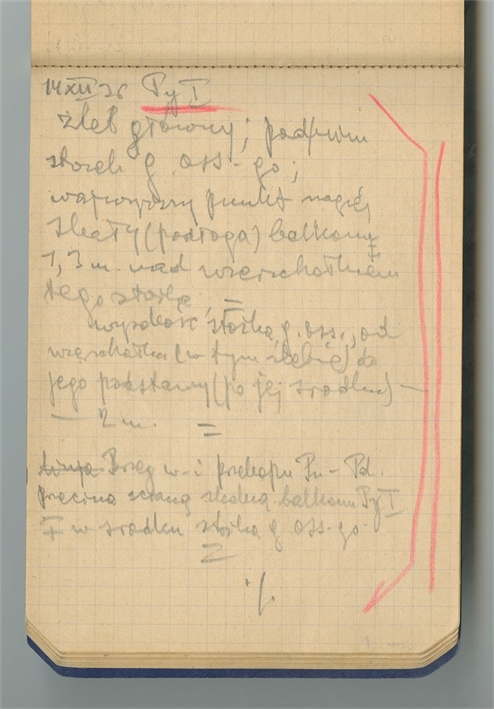 14 XII 36 Py I
żleb główny; pod nim
stożek g. oss-go;
najwyższy punkt nagiej
skały (podłoga) balkonu
1,3 m. nad wierzchołkiem
tego stożka. =
wysokość stożka g. oss., od
wierzchołka (w tym żlebie) do
jego podstawy (po jej środku) —
— 2 m. =
Brzeg w-i przekopu Pn - Pd.
przecina ścianę skalną balkonu Py I
w środku stożka g oss-go
=
./.